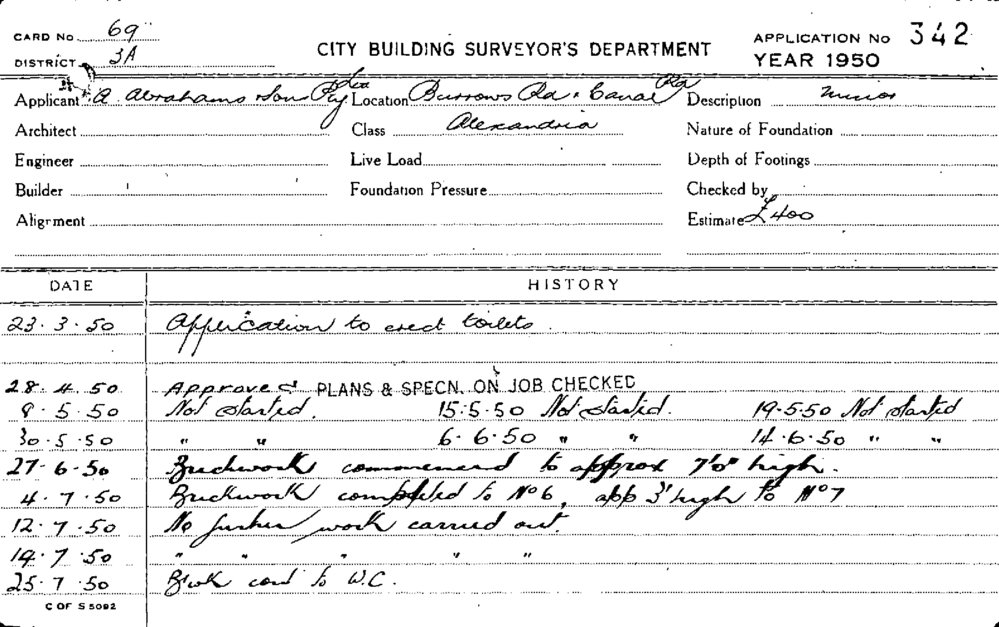 CARD No 69
CITY BUILDING SURVEYOR'S DEPARTMENT
APPLICATION No 342
DISTRICT 3A
YEAR 1950
Applicant A. Abrahams & Son Pty Ltd Location Burrows Rd & Canal Rd Description Minor
Architect Class Alexandria Nature of Foundation
Engineer Live Load Depth of Footings
Builder Foundation Pressure Checked by
Alignment Estimate £400
DATE HISTORY
23.3.50 Application to erect toilets.
28.4.50 Approved PLANS & SPECN. ON JOB CHECKED
9.5.50 Not started. 15.5.50 Not started. 19.5.50 Not started
30.5.50 " " 6.6.50 " " 14.6.50 " "
27.6.50 Brickwork commenced to approx 7'0" high.
4.7.50 Brickwork completed to No 6, app 3' high to No 7
12.7.50 No further work carried out.
19.7.50 " " " " "
25.7.50 to W.C.
C OF S 5092